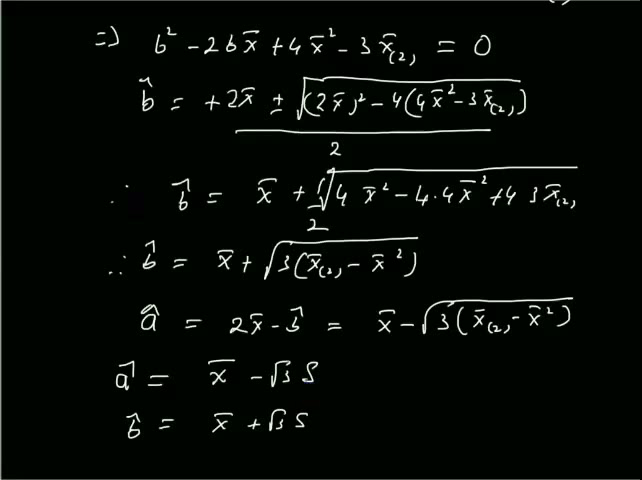 =) b² - 2bx̄ + 4x̄² - 3x̄₍₂₎ = 0
b̂ = +2x̄ ± √((2x̄)² - 4(4x̄² - 3x̄₍₂₎)) / 2
∴ b̂ = x̄ + 1/2 √(4x̄² - 4·4x̄² + 4 3x̄₍₂₎)
∴ b̂ = x̄ + √(3(x̄₍₂₎ - x̄²))
â = 2x̄ - b̂ = x̄ - √(3(x̄₍₂₎ - x̄²))
â = x̄ - √3 S
b̂ = x̄ + √3 S